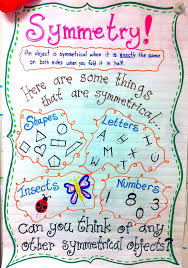 Symmetry!
An object is symmetrical when it is exactly the same
on both sides when you fold it in half.
Here are some things
that are symmetrical...
Shapes
Letters
A
M T
H W U
Insects
Numbers
1 8
8 3
0
Can you think of any
other symmetrical objects?